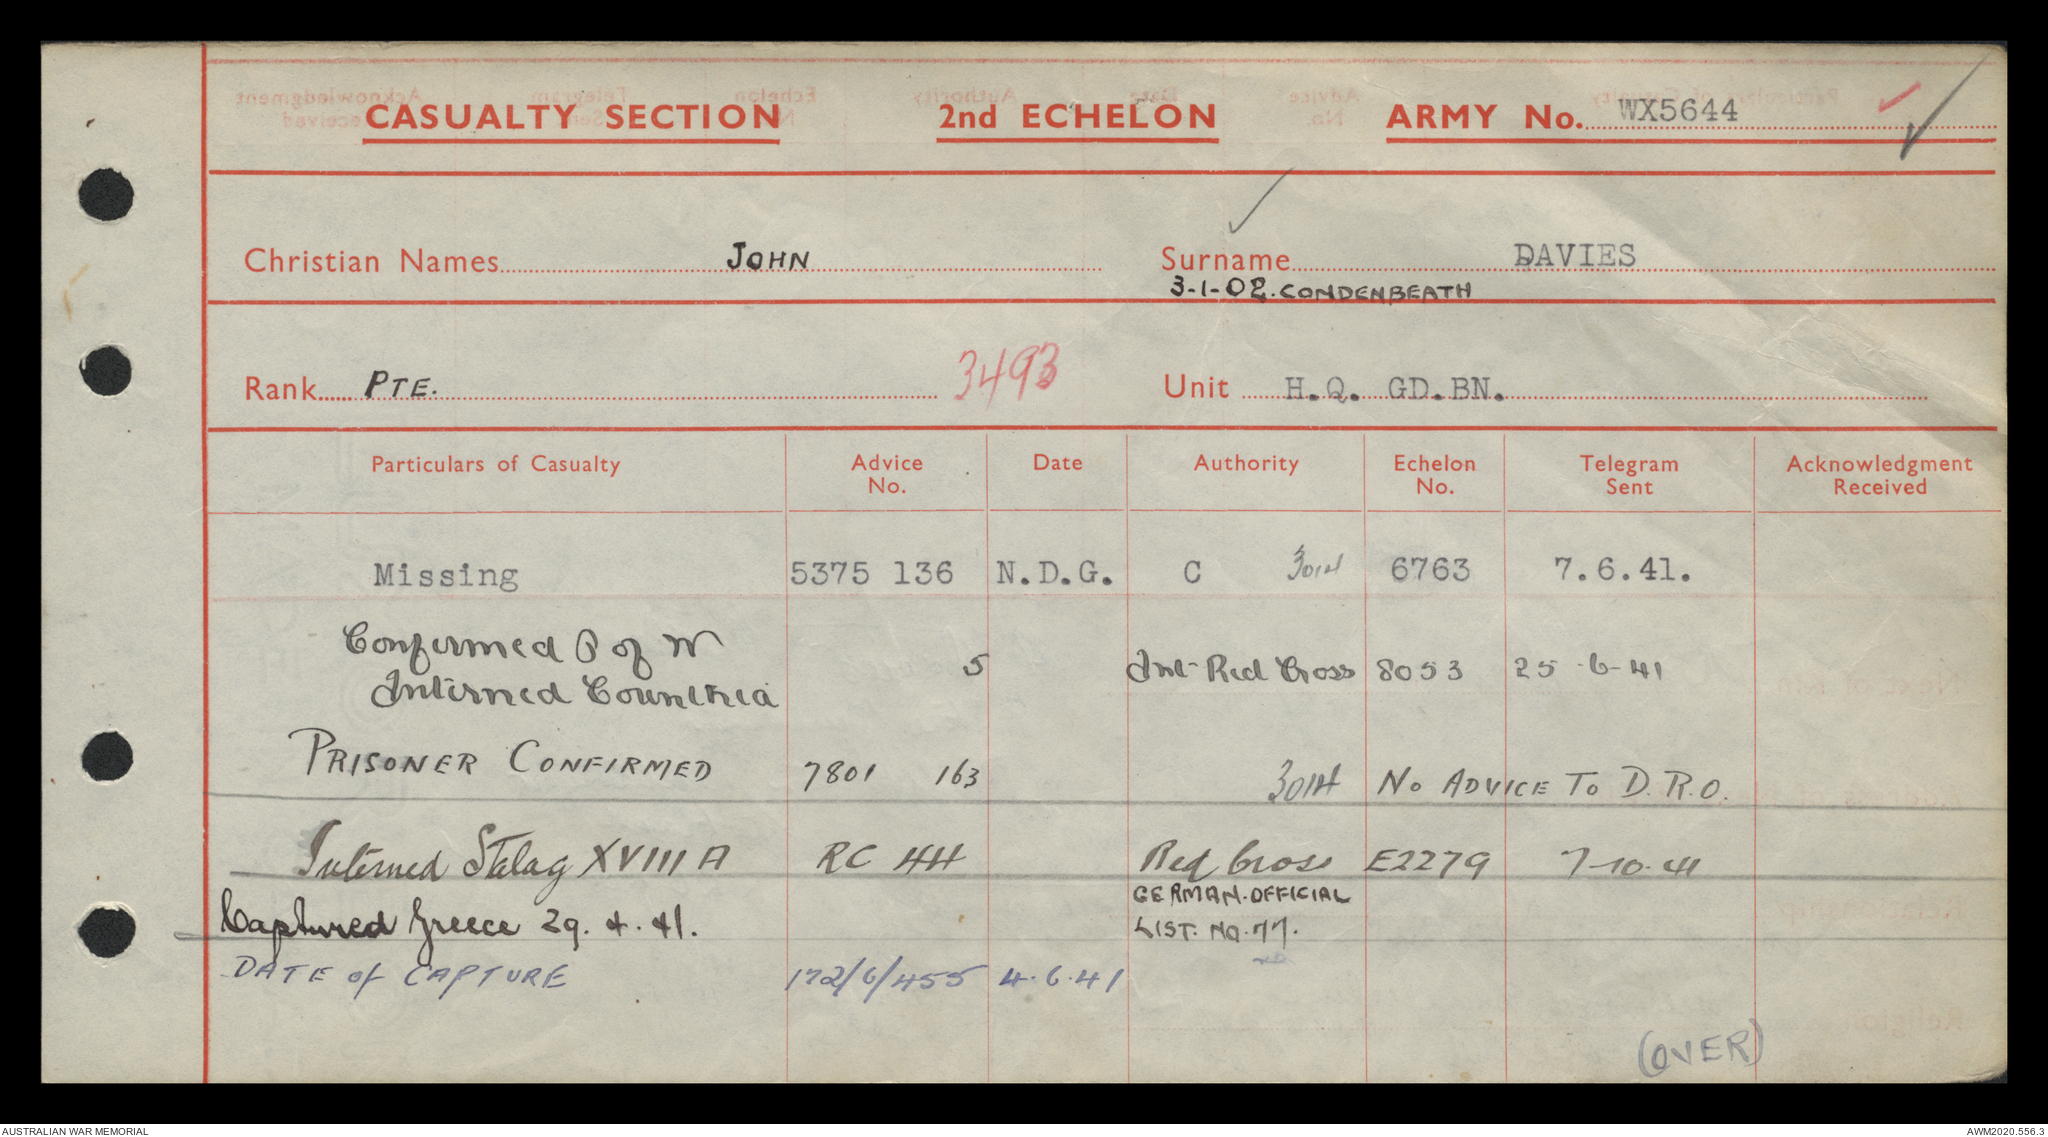 CASUALTY SECTION 2nd ECHELON ARMY No. WX5644
Christian Names JOHN Surname DAVIES
3-1-02. CONDENBEATH
Rank PTE. 3493 Unit H.Q. GD.BN.
Particulars of Casualty Advice No. Date Authority Echelon No. Telegram Sent Acknowledgment Received
Missing 5375 136 N.D.G. C 301H 6763 7.6.41.
Confirmed P of W
Interned 5 Int-Red Cross 8053 25-6-41
PRISONER CONFIRMED 7801 163 301H NO ADVICE TO D.R.O.
Interned Stalag XVIII A RC 44 Red Cross E2279 7-10-41
GERMAN.OFFICIAL
Captured Greece 29.4.41. LIST. NO.77.
DATE of CAPTURE 172/6/455 4.6.41
(OVER)
AUSTRALIAN WAR MEMORIAL AWM2020.556.3